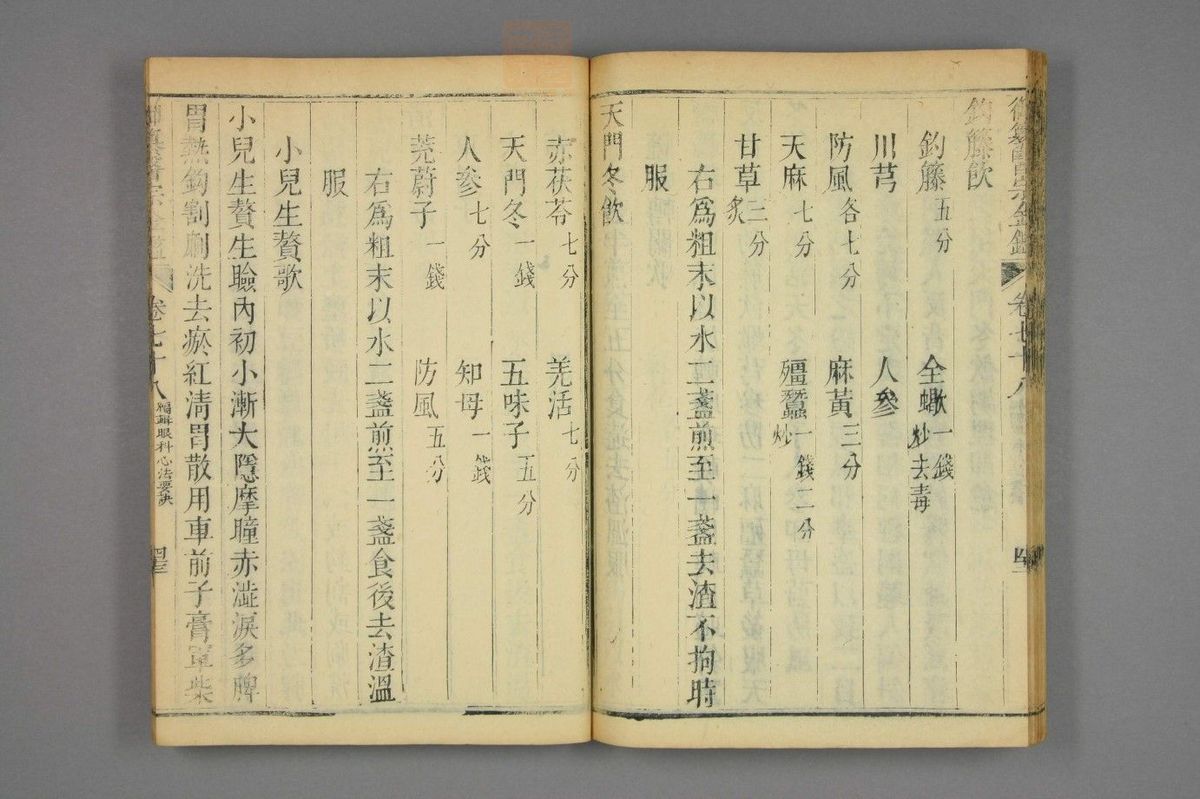 御纂醫宗金鑑 卷七十八 四三
鈎籐飲
鈎籐五分 全蠍一錢炒去毒
川芎 人參
防風各七分 麻黃三分
天麻七分 殭蠶一錢二分炒
甘草三分炙
右爲粗末以水二盞煎至一盞去渣不拘時
服
天門冬飲
赤茯苓七分 羗活七分
天門冬一錢 五味子五分
人參七分 知母一錢
茺蔚子一錢 防風五分
右爲粗末以水二盞煎至一盞食後去渣溫
服
小兒生贅歌
小兒生贅生瞼內初小漸大隱摩瞳赤澁淚多脾
胃熱鈎割劆洗去瘀紅淸胃散用車前子膏
御纂醫宗金鑑 卷七十八 編輯眼科心法要訣 四三